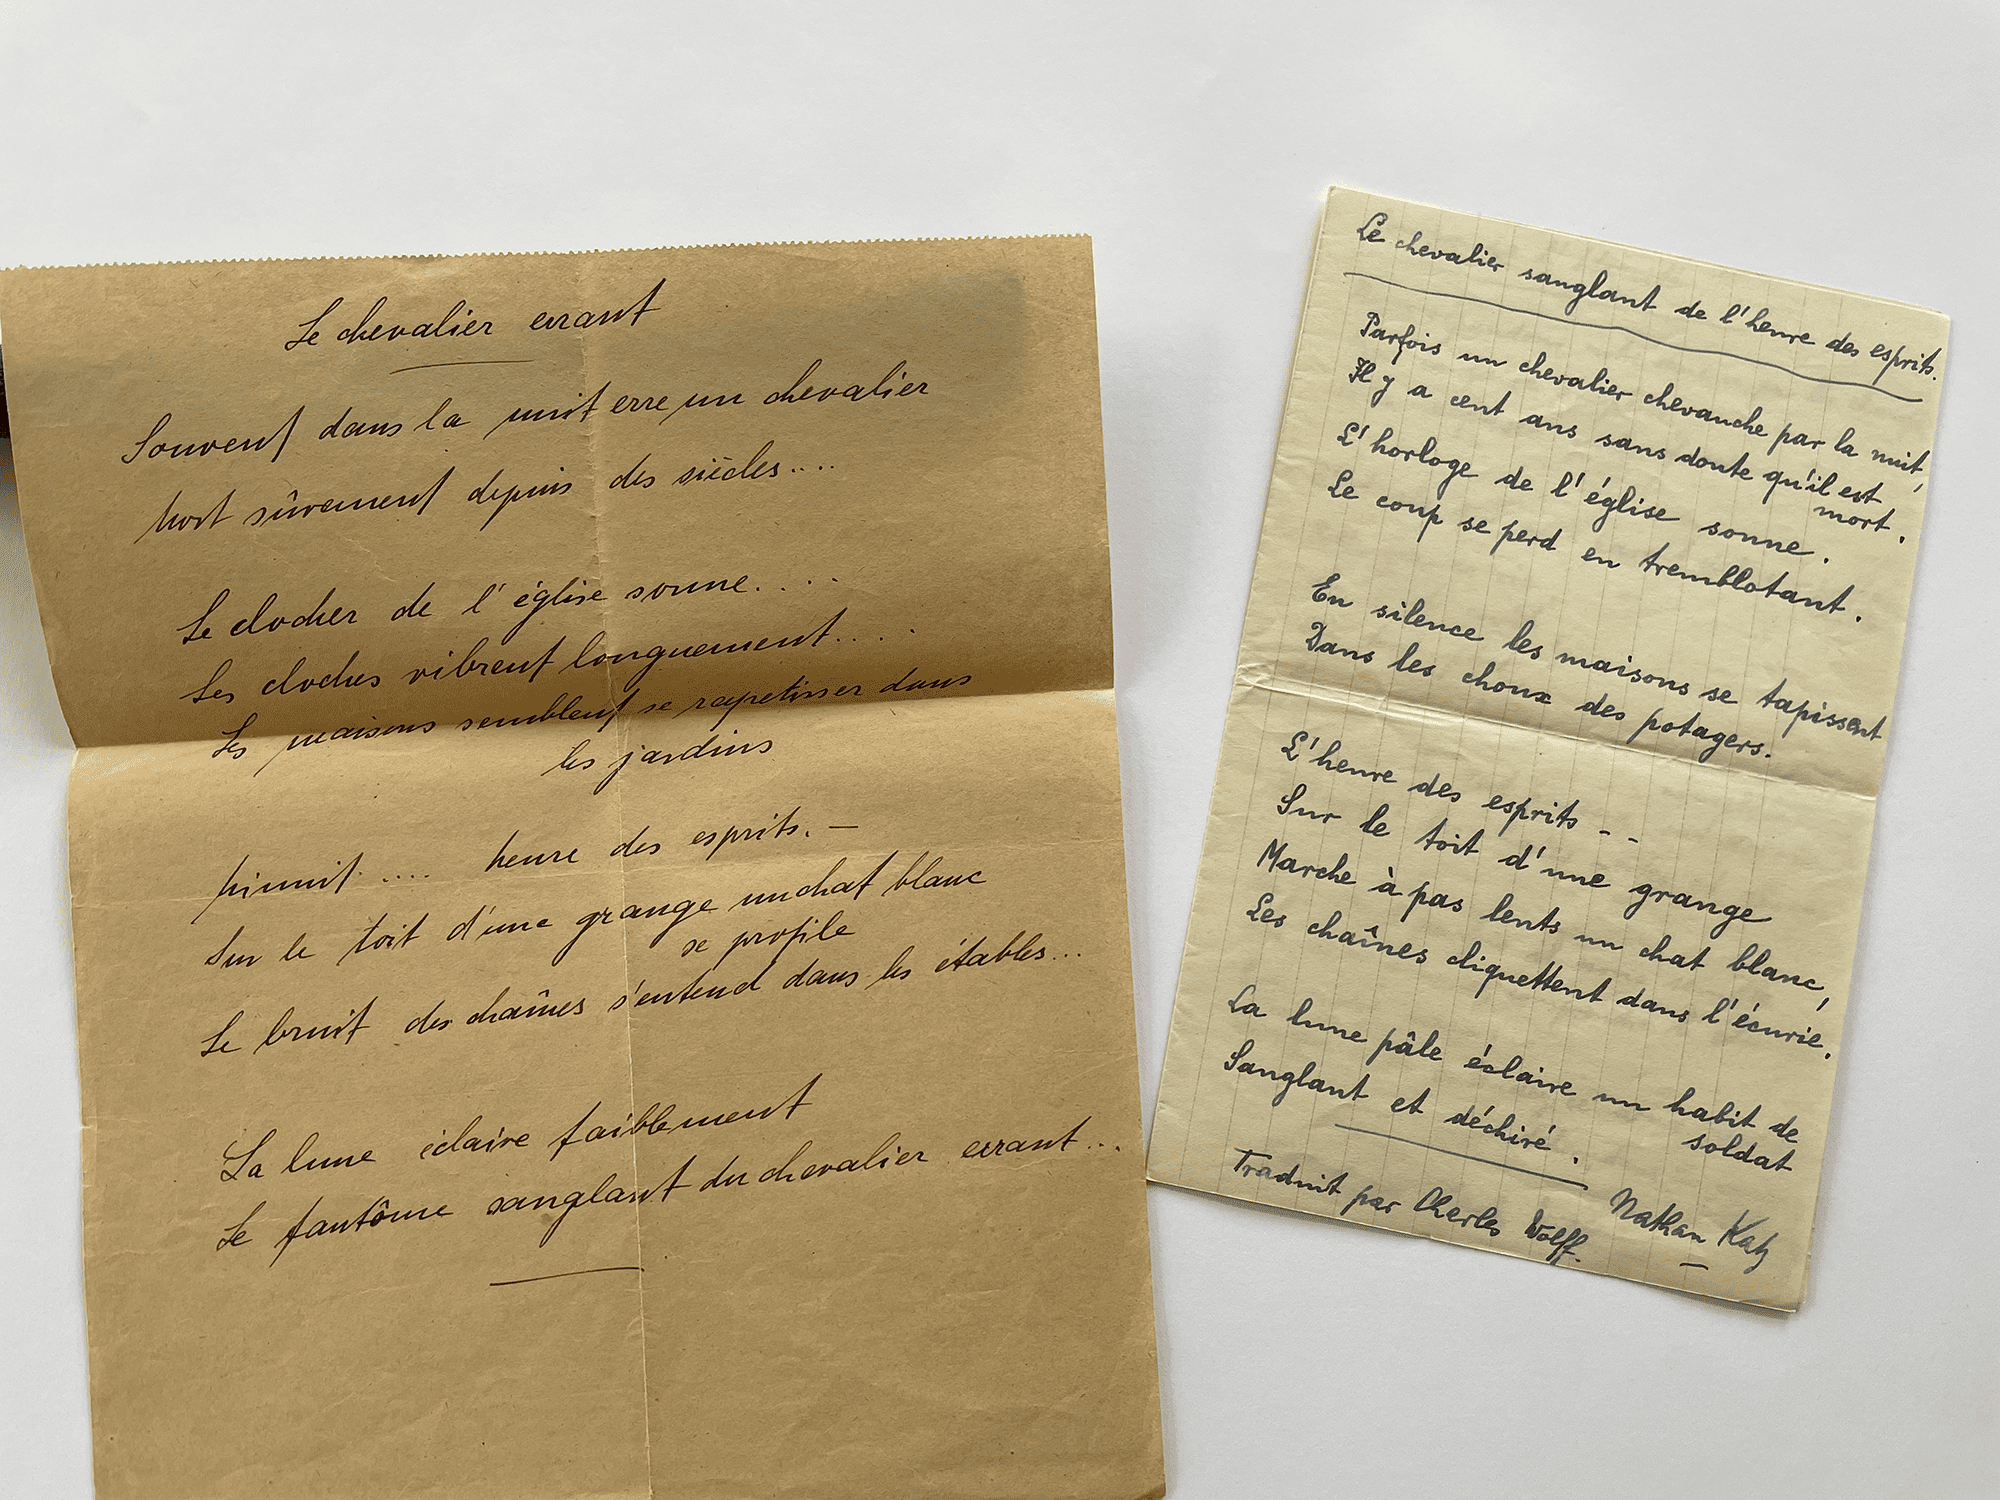 Le chevalier errant
Souvent dans la nuit erre un chevalier
Mort sûrement depuis des siècles....
Le clocher de l'église sonne....
Les cloches vibrent longuement....
Les maisons semblent se rapetisser dans
les jardins
Minuit.... heure des esprits. —
Sur le toit d'une grange un chat blanc
se profile
Le bruit des chaînes s'entend dans les étables...
La lune éclaire faiblement
Le fantôme sanglant du chevalier errant...
Le chevalier sanglant de l'heure des esprits.
Parfois un chevalier chevauche par la nuit,
Il y a cent ans sans doute qu'il est
mort.
L'horloge de l'église sonne.
Le coup se perd en tremblotant.
En silence les maisons se tapissent
Dans les choux des potagers.
L'heure des esprits - -
Sur le toit d'une grange
Marche à pas lents un chat blanc,
Les chaînes cliquettent dans l'écurie.
La lune pâle éclaire un habit de
soldat
Sanglant et déchiré.
Nathan Katz
Traduit par Charles Wolff.